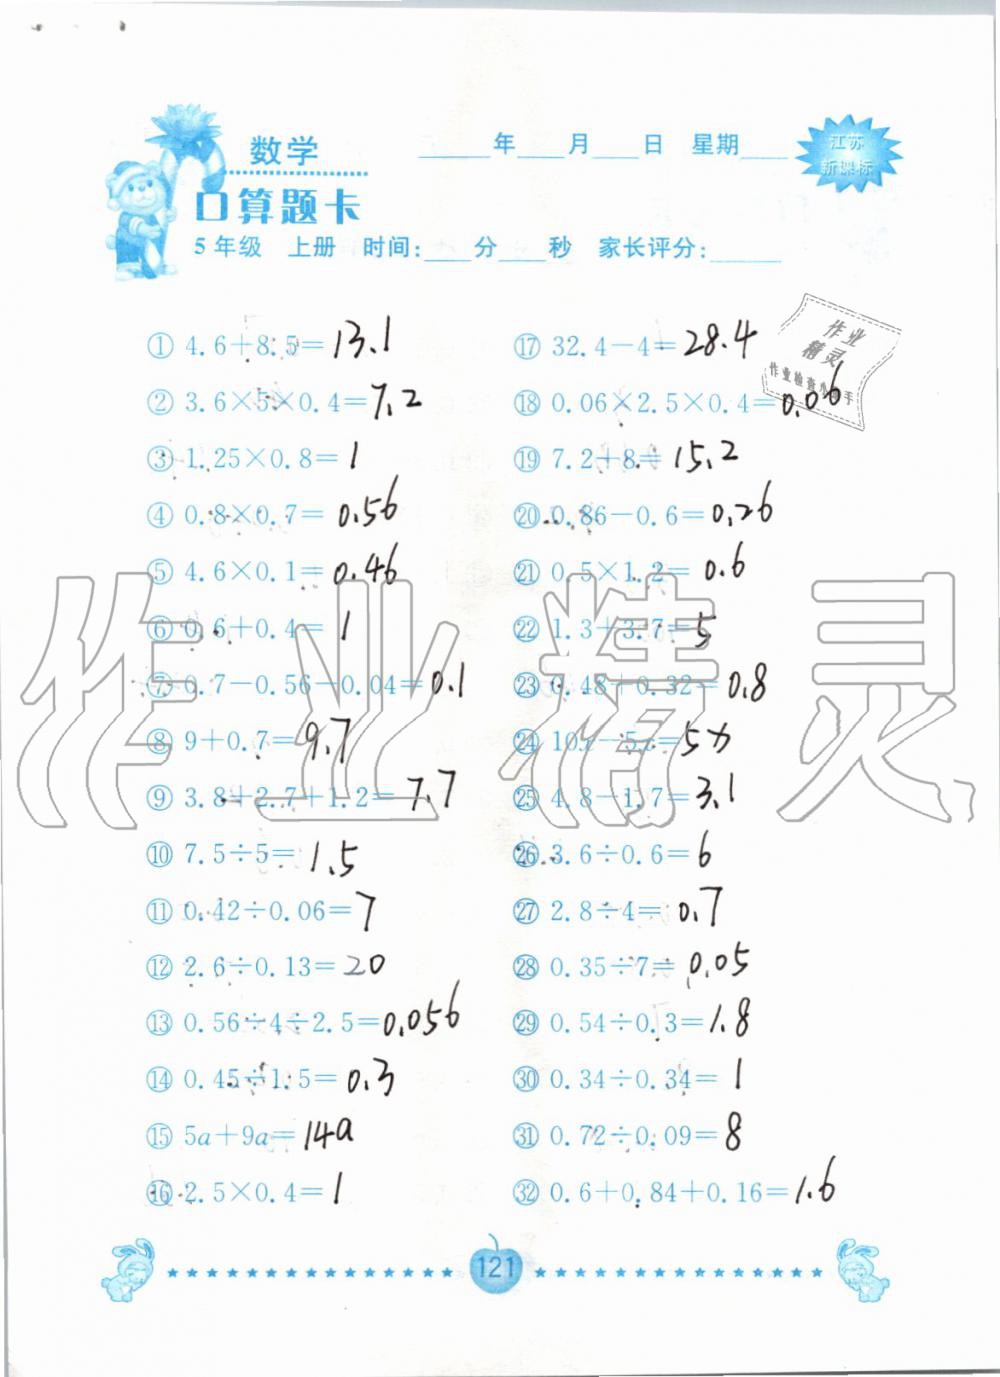 数学
____年____月____日 星期____
江苏
新课标
口算题卡
5年级 上册 时间:____分____秒 家长评分:______
① 4.6+8.5=13.1
② 3.6×5×0.4=7.2
③ 1.25×0.8=1
④ 0.8×0.7=0.56
⑤ 4.6×0.1=0.46
⑥ 0.6+0.4=1
⑦ 0.7-0.56-0.04=0.1
⑧ 9+0.7=9.7
⑨ 3.8+2.7+1.2=7.7
⑩ 7.5÷5=1.5
⑪ 0.42÷0.06=7
⑫ 2.6÷0.13=20
⑬ 0.56÷4÷2.5=0.056
⑭ 0.45÷1.5=0.3
⑮ 5a+9a=14a
⑯ 2.5×0.4=1
⑰ 32.4-4=28.4
⑱ 0.06×2.5×0.4=0.06
⑲ 7.2+8=15.2
⑳ 0.86-0.6=0.26
㉑ 0.5×1.2=0.6
㉒ 1.3+3.7=5
㉓ 0.48+0.32=0.8
㉔ 10x-5x=5x
㉕ 4.8-1.7=3.1
㉖ 3.6÷0.6=6
㉗ 2.8÷4=0.7
㉘ 0.35÷7=0.05
㉙ 0.54÷0.3=1.8
㉚ 0.34÷0.34=1
㉛ 0.72÷0.09=8
㉜ 0.6+0.84+0.16=1.6
作业
精灵
作业检查小助手
作业精灵
121